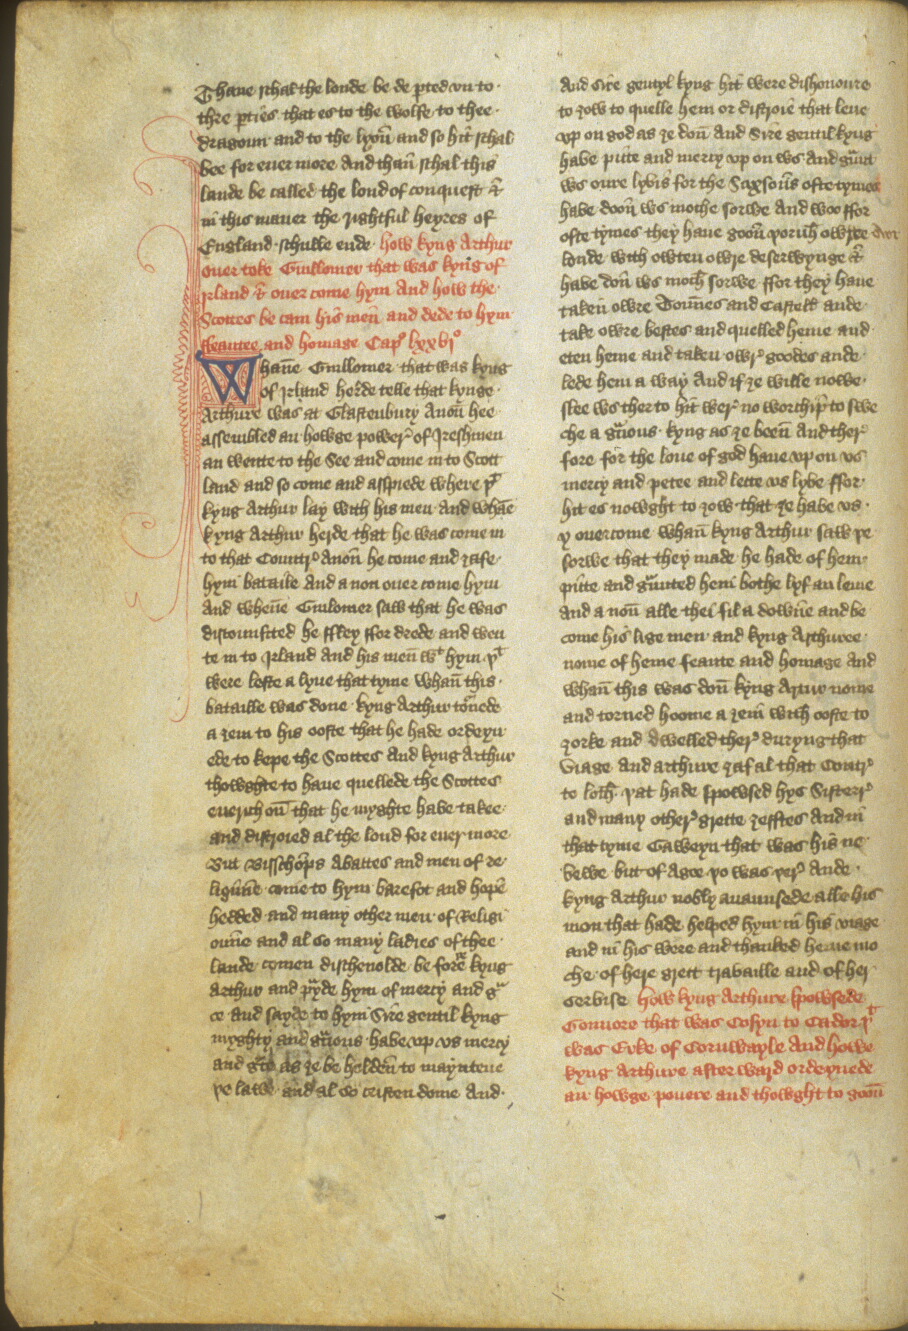 Thane schal the londe be de pted vn to
thre pties that es to the wolfe to thee
dragoun and to the lyoū and so hit schal
bee for euer more And thaū schal this
lande be called the lond of conquest &
in this maner the rightful heyres of
England schulle ende how kyng Arthur
ouer toke Guillomer that was kyng of
Irland & ouer come hym And how the
Scottes be cam his men and dede to hym
feautee and homage Capº lxxvjº
Whane Guillomer that was kyng
of Irland herde telle that kynge
Arthure was at Glastenbury Anon hee
assembled an howge power of Ireshmen
an wente to the See and come in to Scott
land and so come and asspiede where þt
kyng Arthur lay with his men and whāe
kyng Arthur herde that he was come in
to that Countr Anon he come and ȝafe
hym bataile And a non ouer come hym
And whene Guilomer saw that he was
discumfited he ffley ffor drede and wen
te in to Irland And his men wt hym þt
were lefte a lyue that tyme Whan this
bataille was done kyng Arthur torned
a ȝein to his ooste that he hade ordeyn
ede to kepe the Scottes And kyng Arthur
thowghte to haue quellede the Scottes
euerich on that he myghte habe takee
and distroied al the lond for euer more
But Bisschops Abattes and men of re
ligiūne come to hym barefot and hope
hedded and many other men of Religi
oune and al so many ladies of thee
lande comen discheuolde be fore kyng
Arthur and pyde hym of mercy and gͣ
ce and sayde to hym Sire gentil kyng
myghty and gͣcious habe vp vs mercy
and as ȝe be holden to mayntene
þe lawe and al so cristen dome And
And Sire gentyl kyng hit were dishonoure
to ȝow to quelle hem or distroie that leue
vp on god as ȝe don And Sire gentil kyng
habe pite and mercy vp on ws And gͣnt
ws oure lyvis for the Saxsons ofte tymes
habe doon ws moche sorwe And woo ffor
ofte tymes they haue goon þoruh owre over
londe with owten owre deserwynge &
habe don ws moch sorwe ffor they haue
taken owre Tounes and Castell ande
take owre bestes and quelled heme and
eten heme and taken owr goodes ande
lede hem a way And if ȝe wille nowe
slee ws ther to hit wer no worchip to swe
che a gͣcious kyng as ȝe been And ther
fore for the loue of god haue vp on vs
mercy and petee and lette vs lybe ffor
hit es nowght to ȝow that ȝe habe vs
y ouercome Whan kyng Arthur saw þe
sorwe that they made he hade of hem
pitte and gͣunted hem bothe lyf an leme
And a non alle thei fil a downe and be
come his lige men and kyng Arthuree
nome of heme feaute and homage And
whan this was don kyng Artur nome
and torned hoome a ȝein with ooste to
ȝorke and dwelled ther duryng that
viage And arthure ȝaf al that Contr
to Loth þat hade spowsed hys Sister
and many other grette ȝefftes And in
that tyme Gaweyn that was his ne
bewe but of Age ȝo was ȝer Ande
kyng Arthur nobly auaunsede alle his
men that hade helped hym in his viage
and in his were and thanked heme mo
che of here grett trabaille and of her
Serbise how kyng Arthure spowsede
Gonnore that was Cosyn to Cador þt
was Erle of Cornwayle And howe
kyng Arthure after ward ordeynede
an howge powere and thowght to goon